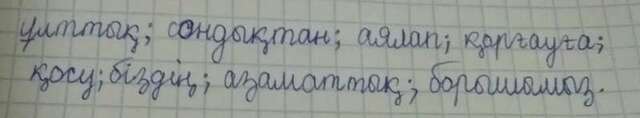 ұлттық; сондықтан; аялап; қорғауға;
қосу; біздің; азаматтық; борышымыз.